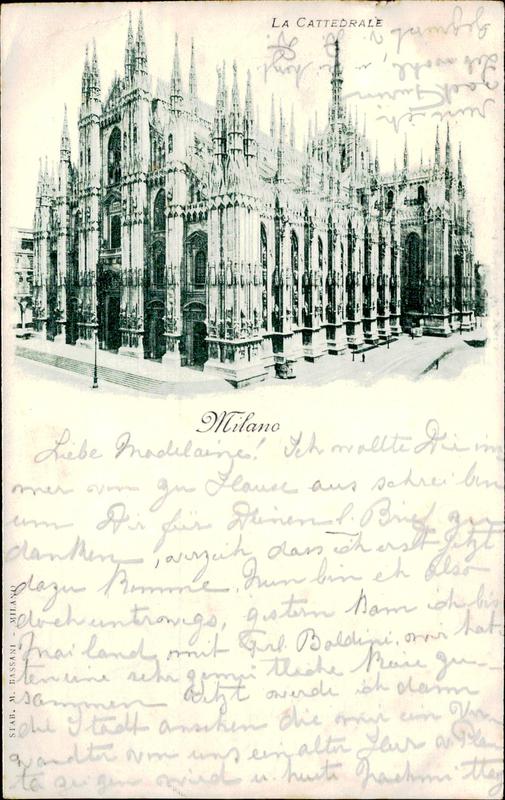 LA CATTEDRALE
Milano
Liebe Madelaine! Ich wollte Dir im
mer von zu Hause aus schreiben
um Dir für Deinen l. Brief zu
danken, verzeih, dass ich erst jetzt
dazu komme. Nun bin ich also
doch unterwegs, gestern kam ich bis
Mailand mit Frl. Baldini, wir hat
ten eine sehr gemütliche Reise zu-
sammen. Jetzt werde ich dann
die Stadt ansehen die mir ein Ver
wandter von uns ein alter Herr v. Plan
ta zeigen wird u. heute Nachmittag
STAB. M. BASSANI - MILANO